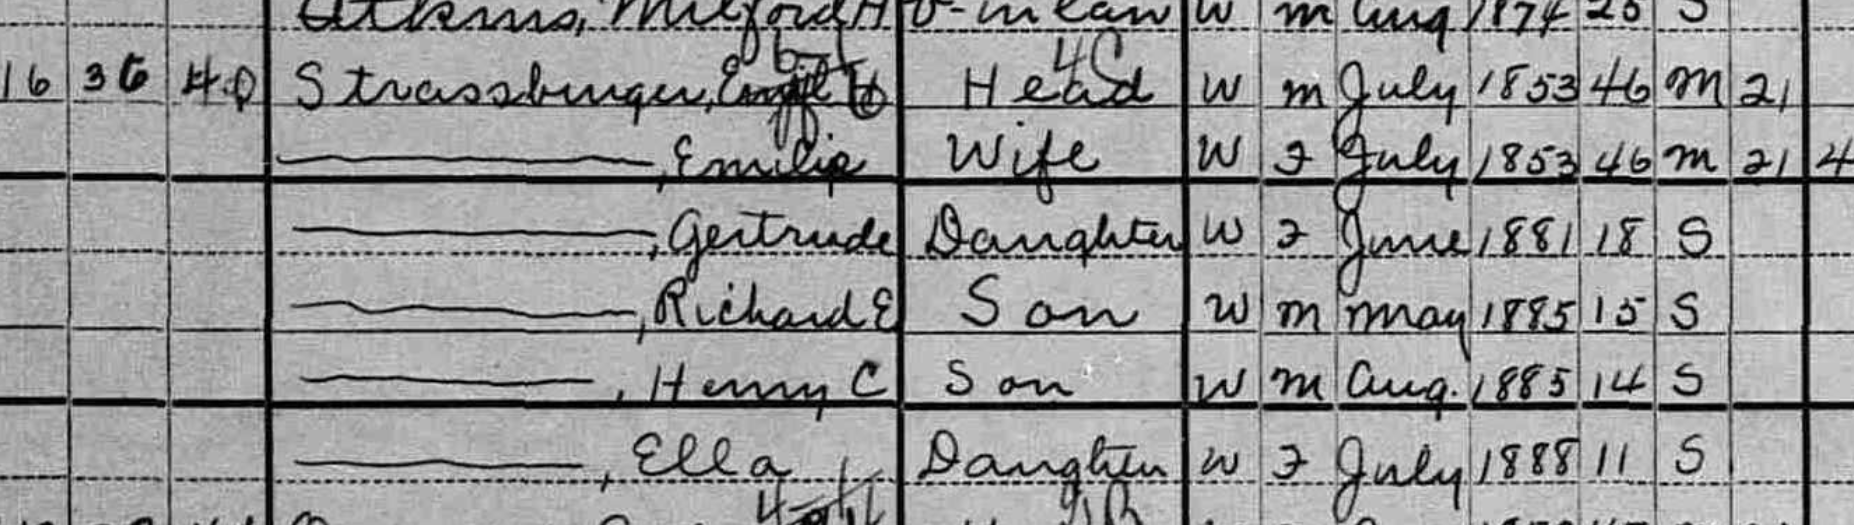 Atkins, Milford H B-in law W m Aug 1874 25 S
16 36 40 Strassburger, H Head W m July 1853 46 M 21
———, Emilie Wife W F July 1853 46 m 21 4
———, Gertrude Daughter W F June 1881 18 S
———, Richard E Son W m May 1885 15 S
———, Henry C Son W m Aug. 1885 14 S
———, Ella Daughter W F July 1888 11 S